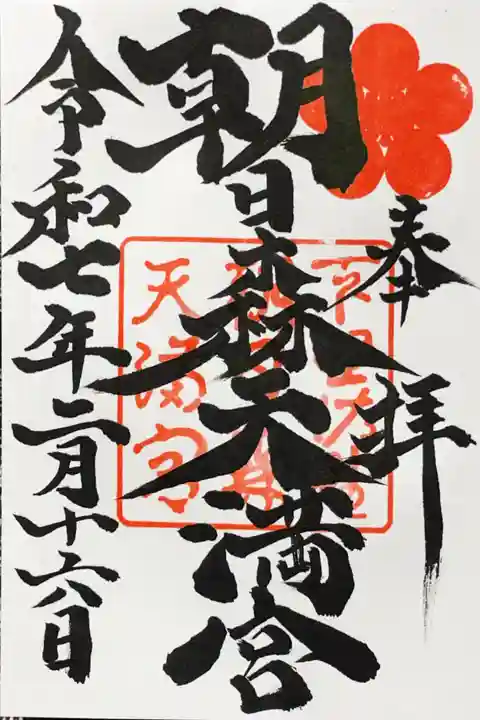 奉拝
朝日森天満宮
天満宮
令和七年二月十六日